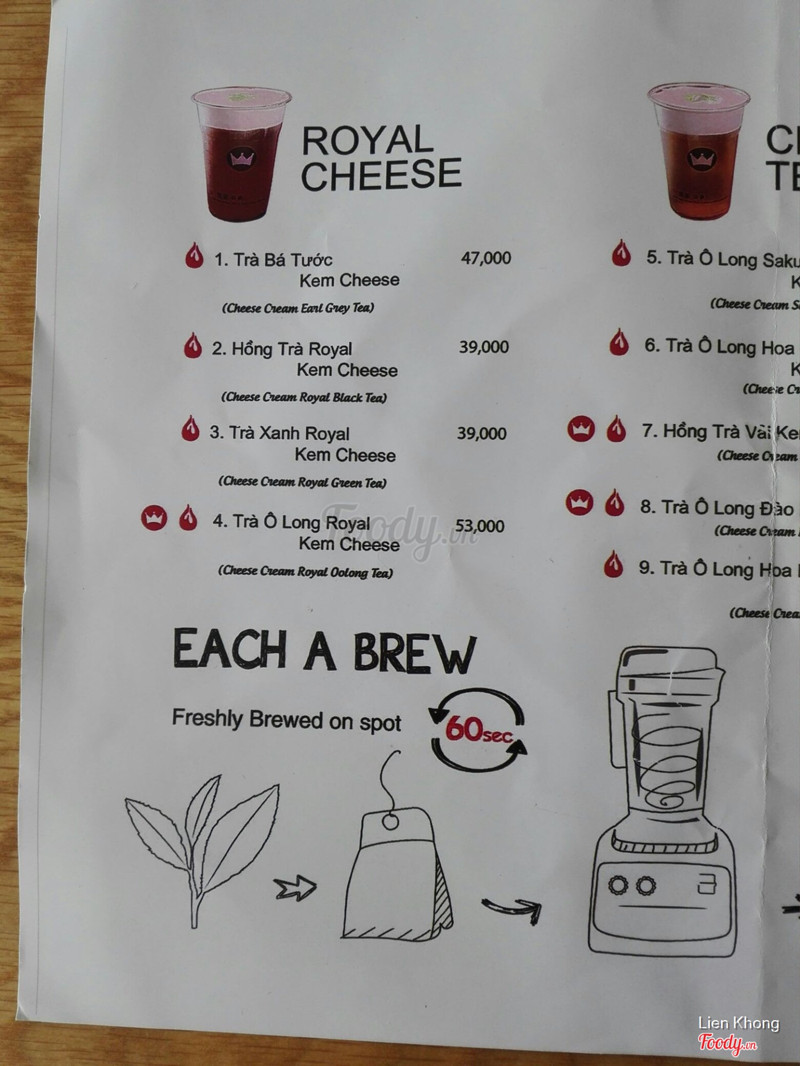 ROYAL
CHEESE
1. Trà Bá Tước 47,000
Kem Cheese
(Cheese Cream Earl Grey Tea)
2. Hồng Trà Royal 39,000
Kem Cheese
(Cheese Cream Royal Black Tea)
3. Trà Xanh Royal 39,000
Kem Cheese
(Cheese Cream Royal Green Tea)
4. Trà Ô Long Royal 53,000
Kem Cheese
(Cheese Cream Royal Oolong Tea)
5. Trà Ô Long
(Cheese Cream
6. Trà Ô Long Hoa
(Cheese
7. Hồng Trà Vải
(Cheese Cream
8. Trà Ô Long Đào
(Cheese Cream
9. Trà Ô Long Hoa
(Cheese
EACH A BREW
Freshly Brewed on spot
60sec
Foody.vn
Lien Khong
Foody.vn